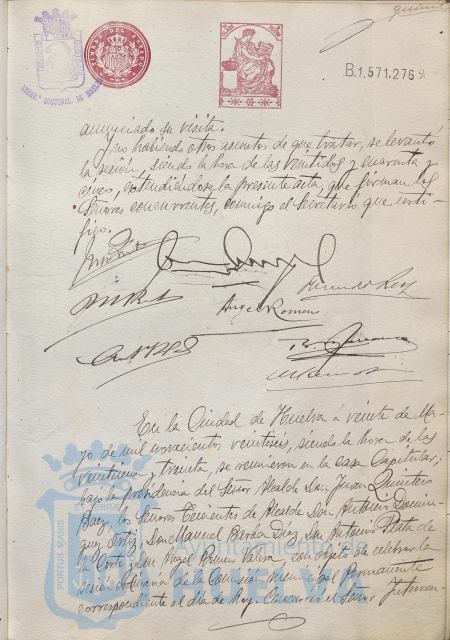 quince
TIMBRE DEL ESTADO
B.1.571.276
anunciado su visita.
Y no habiendo otros asuntos de que tratar, se levantó
la sesión, siendo la hora de las veintidos y cuarenta y
cinco, extendiéndose la presente acta, que firman los
Señores concurrentes, conmigo el Secretario que certi-
fico.
Angel Romero
En la Ciudad de Huelva á veinte de Ma-
yo de mil novecientos veintiseis, siendo la hora de las
veintiuna y treinta, se reunieron en la casa Capitular,
bajo la Presidencia del Señor Alcalde Don Juan Quintero
Baez, los Señores Tenientes de Alcalde Don Antonio Domin-
guez Ortiz, Don Manuel Barba Díaz, Don Antonio Plata de
la Corte y Don Angel Romero Valera, con objeto de celebrar la
sesión ordinaria de la Comisión municipal Permanente
correspondiente al día de hoy. Concurre el Señor Interven-
PORTUS MARIS
Ayuntamiento de
HUELVA